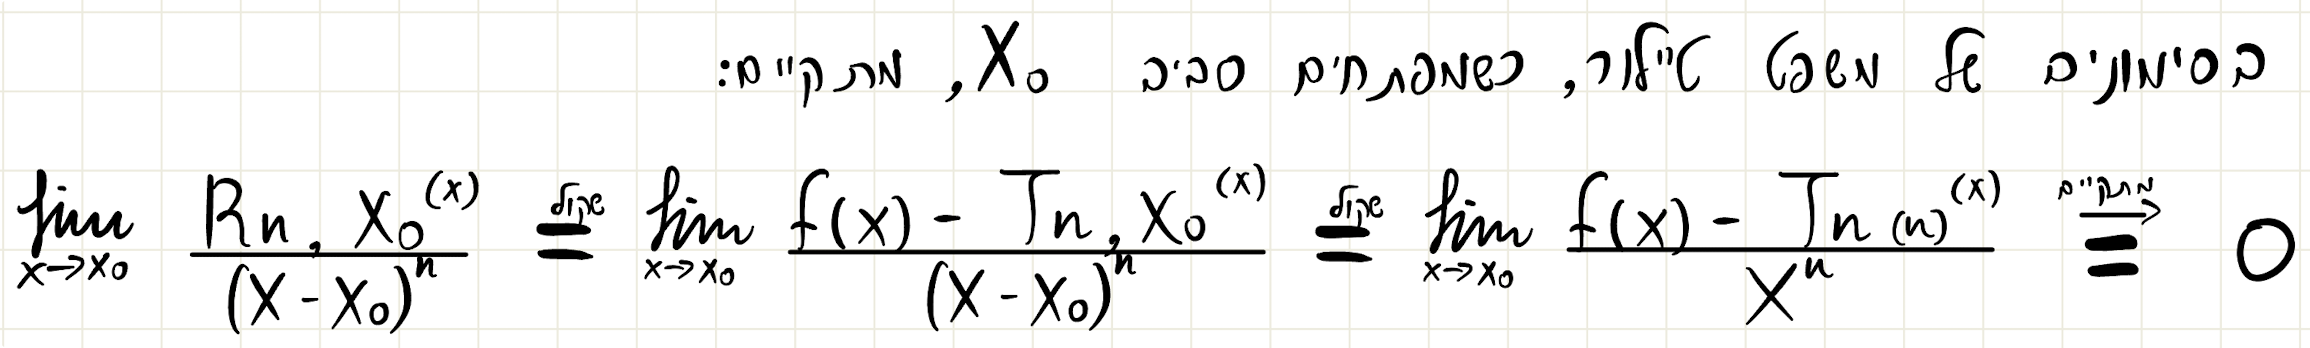 בסימונים של משפט טיילור, כשמפתחים סביב X₀, מתקיים:
lim x→x₀ Rn, X₀(x) / (X - X₀)ⁿ שקול = lim x→x₀ f(x) - Tn, X₀(x) / (X - X₀)ⁿ שקול = lim x→x₀ f(x) - Tn (n)(x) / Xⁿ מתקיים → = 0